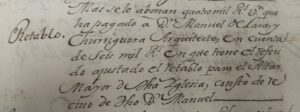 Mas se le abonan quatro mil R.s v.n que
Retablo. ha pagado a D.n Manuel de Lara, y
Churriguera Arquitecto, en Cuenta
de Seis mil R.s en que tiene el referi
do ajustado el Retablo para el Altar
Mayor de dha Yglesia, constó de re
civo de dho D.n Manuel